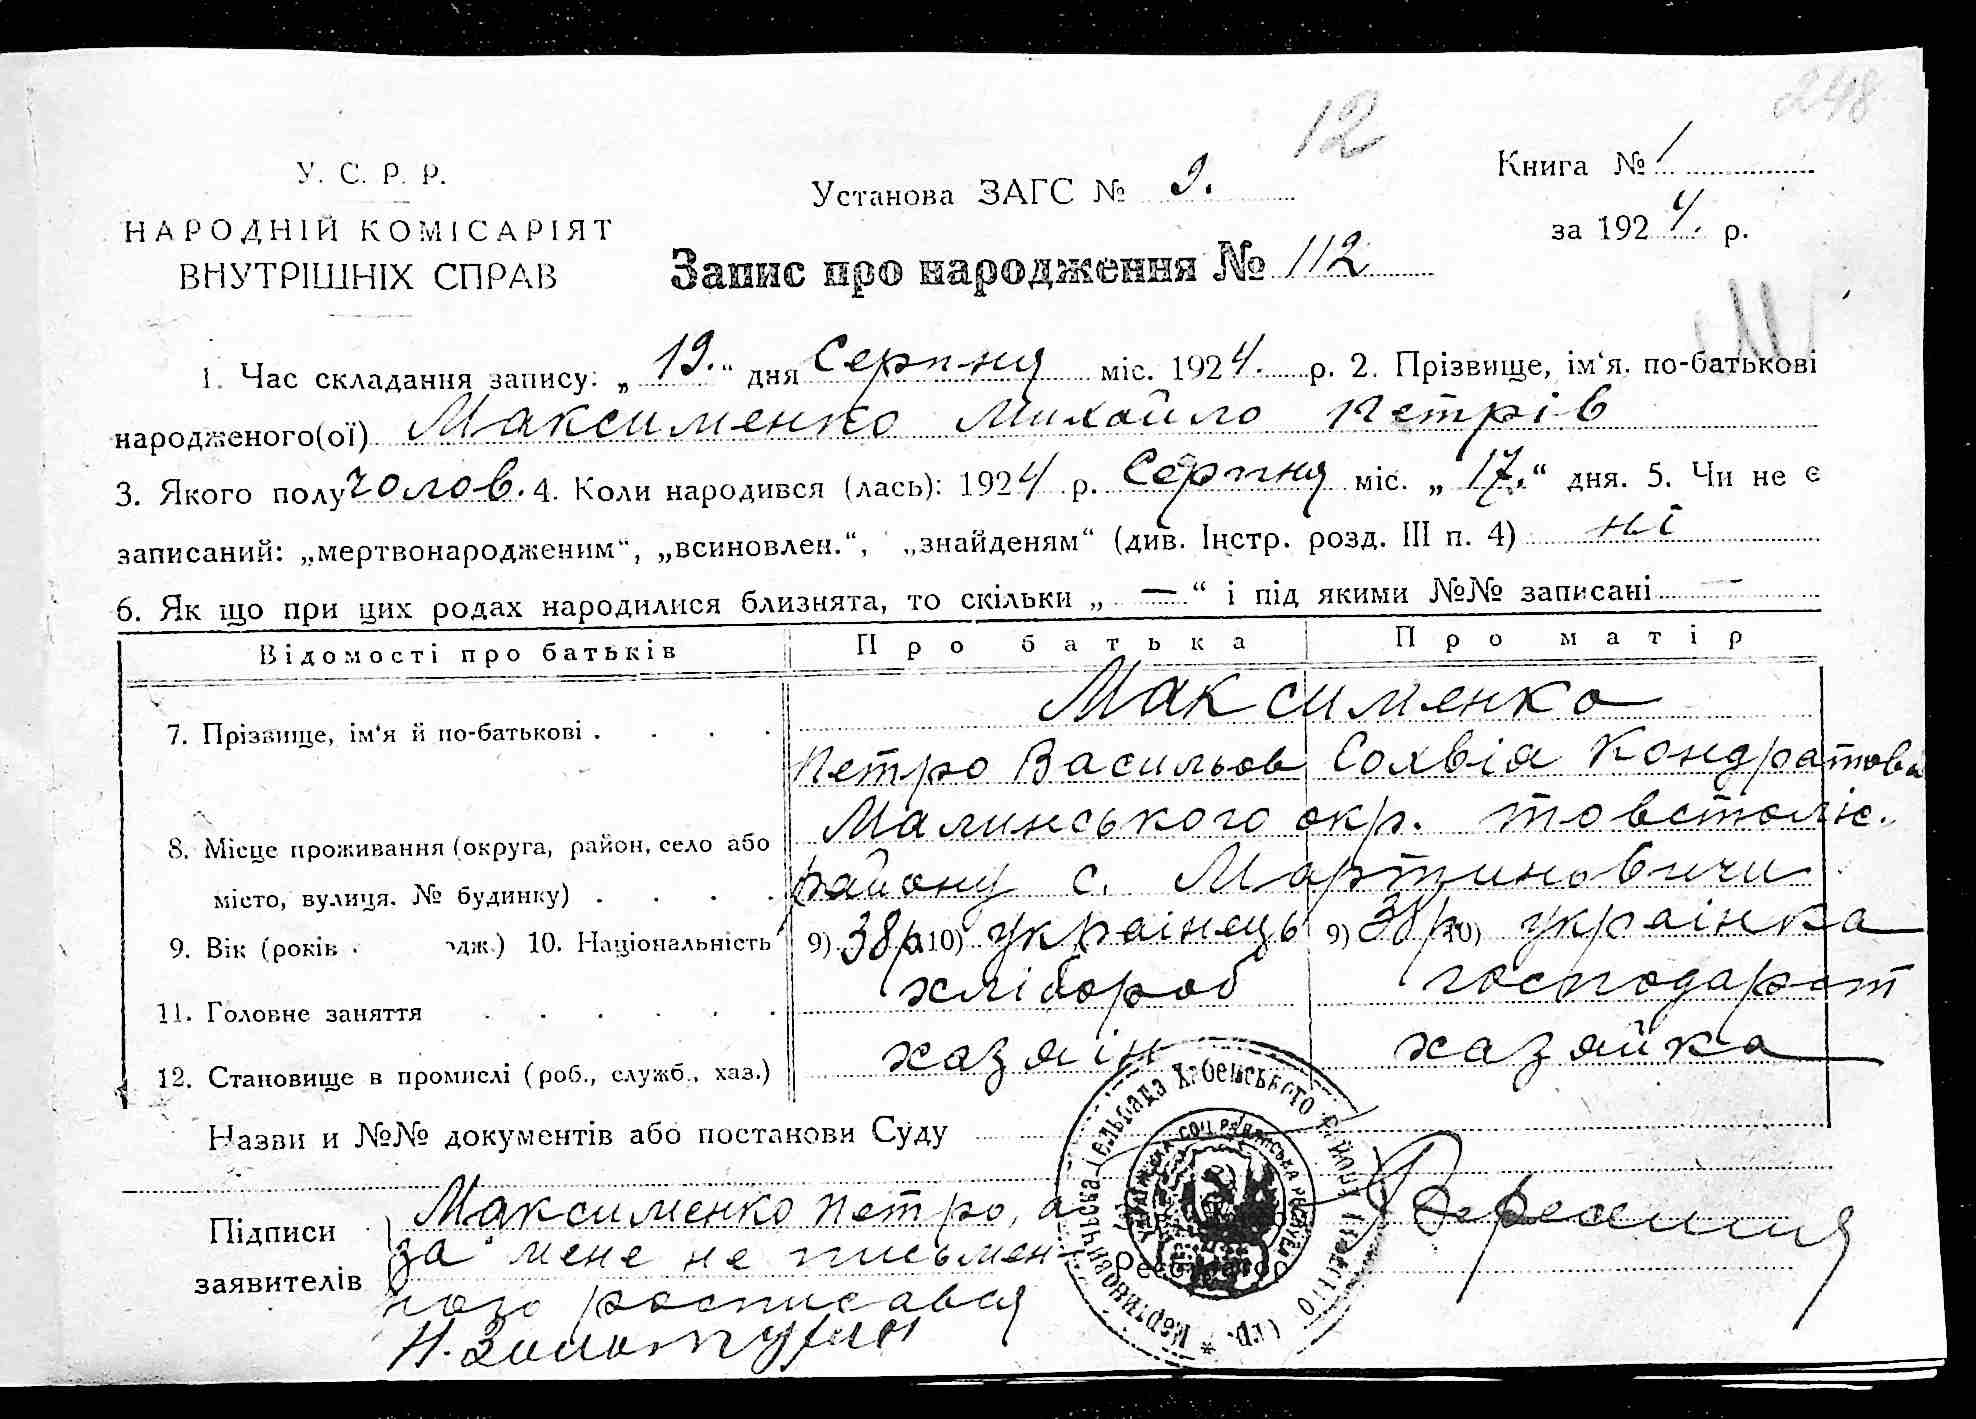 248
12
У. С. Р. Р.
НАРОДНІЙ КОМІСАРІЯТ
ВНУТРІШНІХ СПРАВ
Установа ЗАГС № 9.
Книга № 1
за 1924. р.
Запис про народження № 112
1. Час складання запису: „19.“ дня Серпня міс. 1924. р. 2. Прізвище, ім‘я. по-батькові
народженого(ої) Максименко Михайло Петрів
3. Якого полу чолов. 4. Коли народився (лась): 1924 р. Серпня міс. „17.“ дня. 5. Чи не є
записаний: „мертвонародженим“, „всиновлен.“, „знайденям“ (див. Інстр. розд. III п. 4) ні
6. Як що при цих родах народилися близнята, то скільки „—“ і під якими №№ записані —
Відомості про батьків Про батька Про матір
7. Прізвище, ім‘я й по-батькові . . . . Максименко
Петро Васильов Сохвія Кондратова
8. Місце проживання (округа, район, село або Малинського окр. товстоліс.
місто, вулиця. № будинку) . . . . району с. Мартиновичи
9. Вік (років . одж.) 10. Національність 9) 38р. 10) українець 9) 38р. 10) українка
11. Головне заняття . . . . . хлібороб господарст
12. Становище в промислі (роб., служб., хаз.) хазяін хазяйка
Назви и №№ документів або постанови Суду
Підписи
заявителів
Максименко Петро, а
за мене не письмен
ного росписався
Н. Золотухин
Реєстратор
Мартиновичська сельрада Хабенського району
УКРАЇНСЬКА СОЦ. РАДЯНСЬКА РЕСПУБ